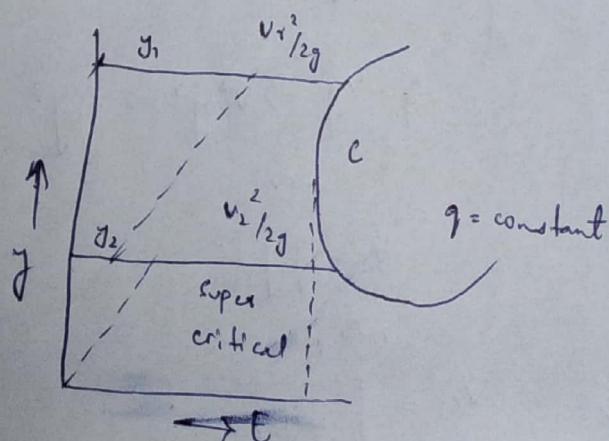 y₁ v₁²/2g
C
y₂ v₂²/2g
q = constant
y
super
critical
E